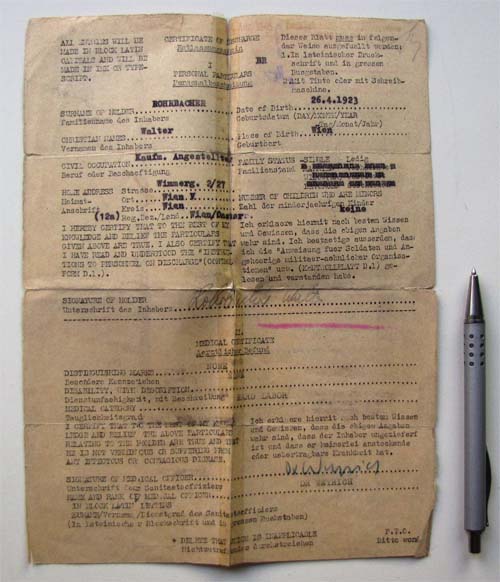 ALL ENTRIES WILL BE
MADE IN BLOCK LATIN
CAPITALS AND WILL BE
MADE IN INK OR TYPE-
SCRIPT.
CERTIFICATE OF DISCHARGE
Entlassungsschein
I
PERSONAL PARTICULARS
Personalbeschreibung
BR
Dieses Blatt muss in folgen-
der Weise ausgefuellt werden:
1. In lateinischer Druck-
schrift und in grossen
Buchstaben.
2. Mit Tinte oder mit Schreib-
maschine.
SURNAME OF HOLDER ROHRBACHER
Familienname des Inhabers
Date of Birth 26.4.1923
Geburtsdatum (DAY/MONTH/YEAR
Tag/Monat/Jahr)
CHRISTIAN NAMES Walter
Vornamen des Inhabers
Place of Birth Wien
Geburtsort
CIVIL OCCUPATION Kaufm. Angestellter
Beruf oder Beschaeftigung
FAMILY STATUS - SINGLE Ledig
Familienstand
HOME ADDRESS Strasse Wimmerg. 2/27
Heimat- Ort Wien V.
Anschrift Kreis Wien
(12a) Reg.Bez/Land. Wien/Oesterr.
NUMBER OF CHILDREN WHO ARE MINORS
Zahl der minderjaehrigen Kinder
keine
I HEREBY CERTIFY THAT TO THE BEST OF MY
KNOWLEDGE AND BELIEF THE PARTICULARS
GIVEN ABOVE ARE TRUE. I ALSO CERTIFY THAT
I HAVE READ AND UNDERSTOOD THE "INSTRUC-
TIONS TO PERSONNEL ON DISCHARGE" (CONTROL
FORM D.1).
Ich erklaere hiermit nach bestem Wissen
und Gewissen, dass die obigen Angaben
wahr sind. Ich bestaetige ausserdem, dass
ich die "Anweisung fuer Soldaten und An-
gehoerige militaer-aehnlicher Organisa-
tionen" usw. (KONTROLLBLATT D.1) ge-
lesen und verstanden habe.
SIGNATURE OF HOLDER
Unterschrift des Inhabers
II.
MEDICAL CERTIFICATE
Aerztlicher Befund
DISTINGUISHING MARKS NONE
Besondere Kennzeichen
DISABILITY, WITH DESCRIPTION
Dienstunfaehigkeit, mit Beschreibung
MEDICAL CATEGORY HARD LABOR
Tauglichkeitsgrad
I CERTIFY THAT TO THE BEST OF MY KNOW-
LEDGE AND BELIEF THE ABOVE PARTICULARS
RELATING TO THE HOLDER ARE TRUE AND THAT
HE IS NOT VERMINOUS OR SUFFERING FROM
ANY INFECTIOUS OR CONTAGIOUS DISEASE.
Ich erklaere hiermit nach bestem Wissen
und Gewissen, dass die obigen Angaben
wahr sind, dass der Inhaber ungezieferfrei
ist und dass er keinerlei ansteckende
oder uebertragbare Krankheit hat.
SIGNATURE OF MEDICAL OFFICER
Unterschrift des Sanitaetsoffiziers
NAME AND RANK OF MEDICAL OFFICER
IN BLOCK LATIN LETTERS
Zuname/Vorname/Dienstgrad des Sanitaetsoffiziers
(In lateinischer Blockschrift und in grossen Buchstaben)
* DELETE THAT WHICH IS INAPPLICABLE
Nichtzutreffendes durchstreichen
P.T.O.
Bitte wend